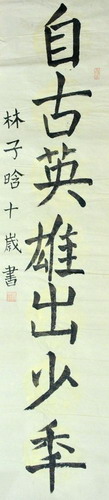 自古英雄出少年
林子晗十歲書